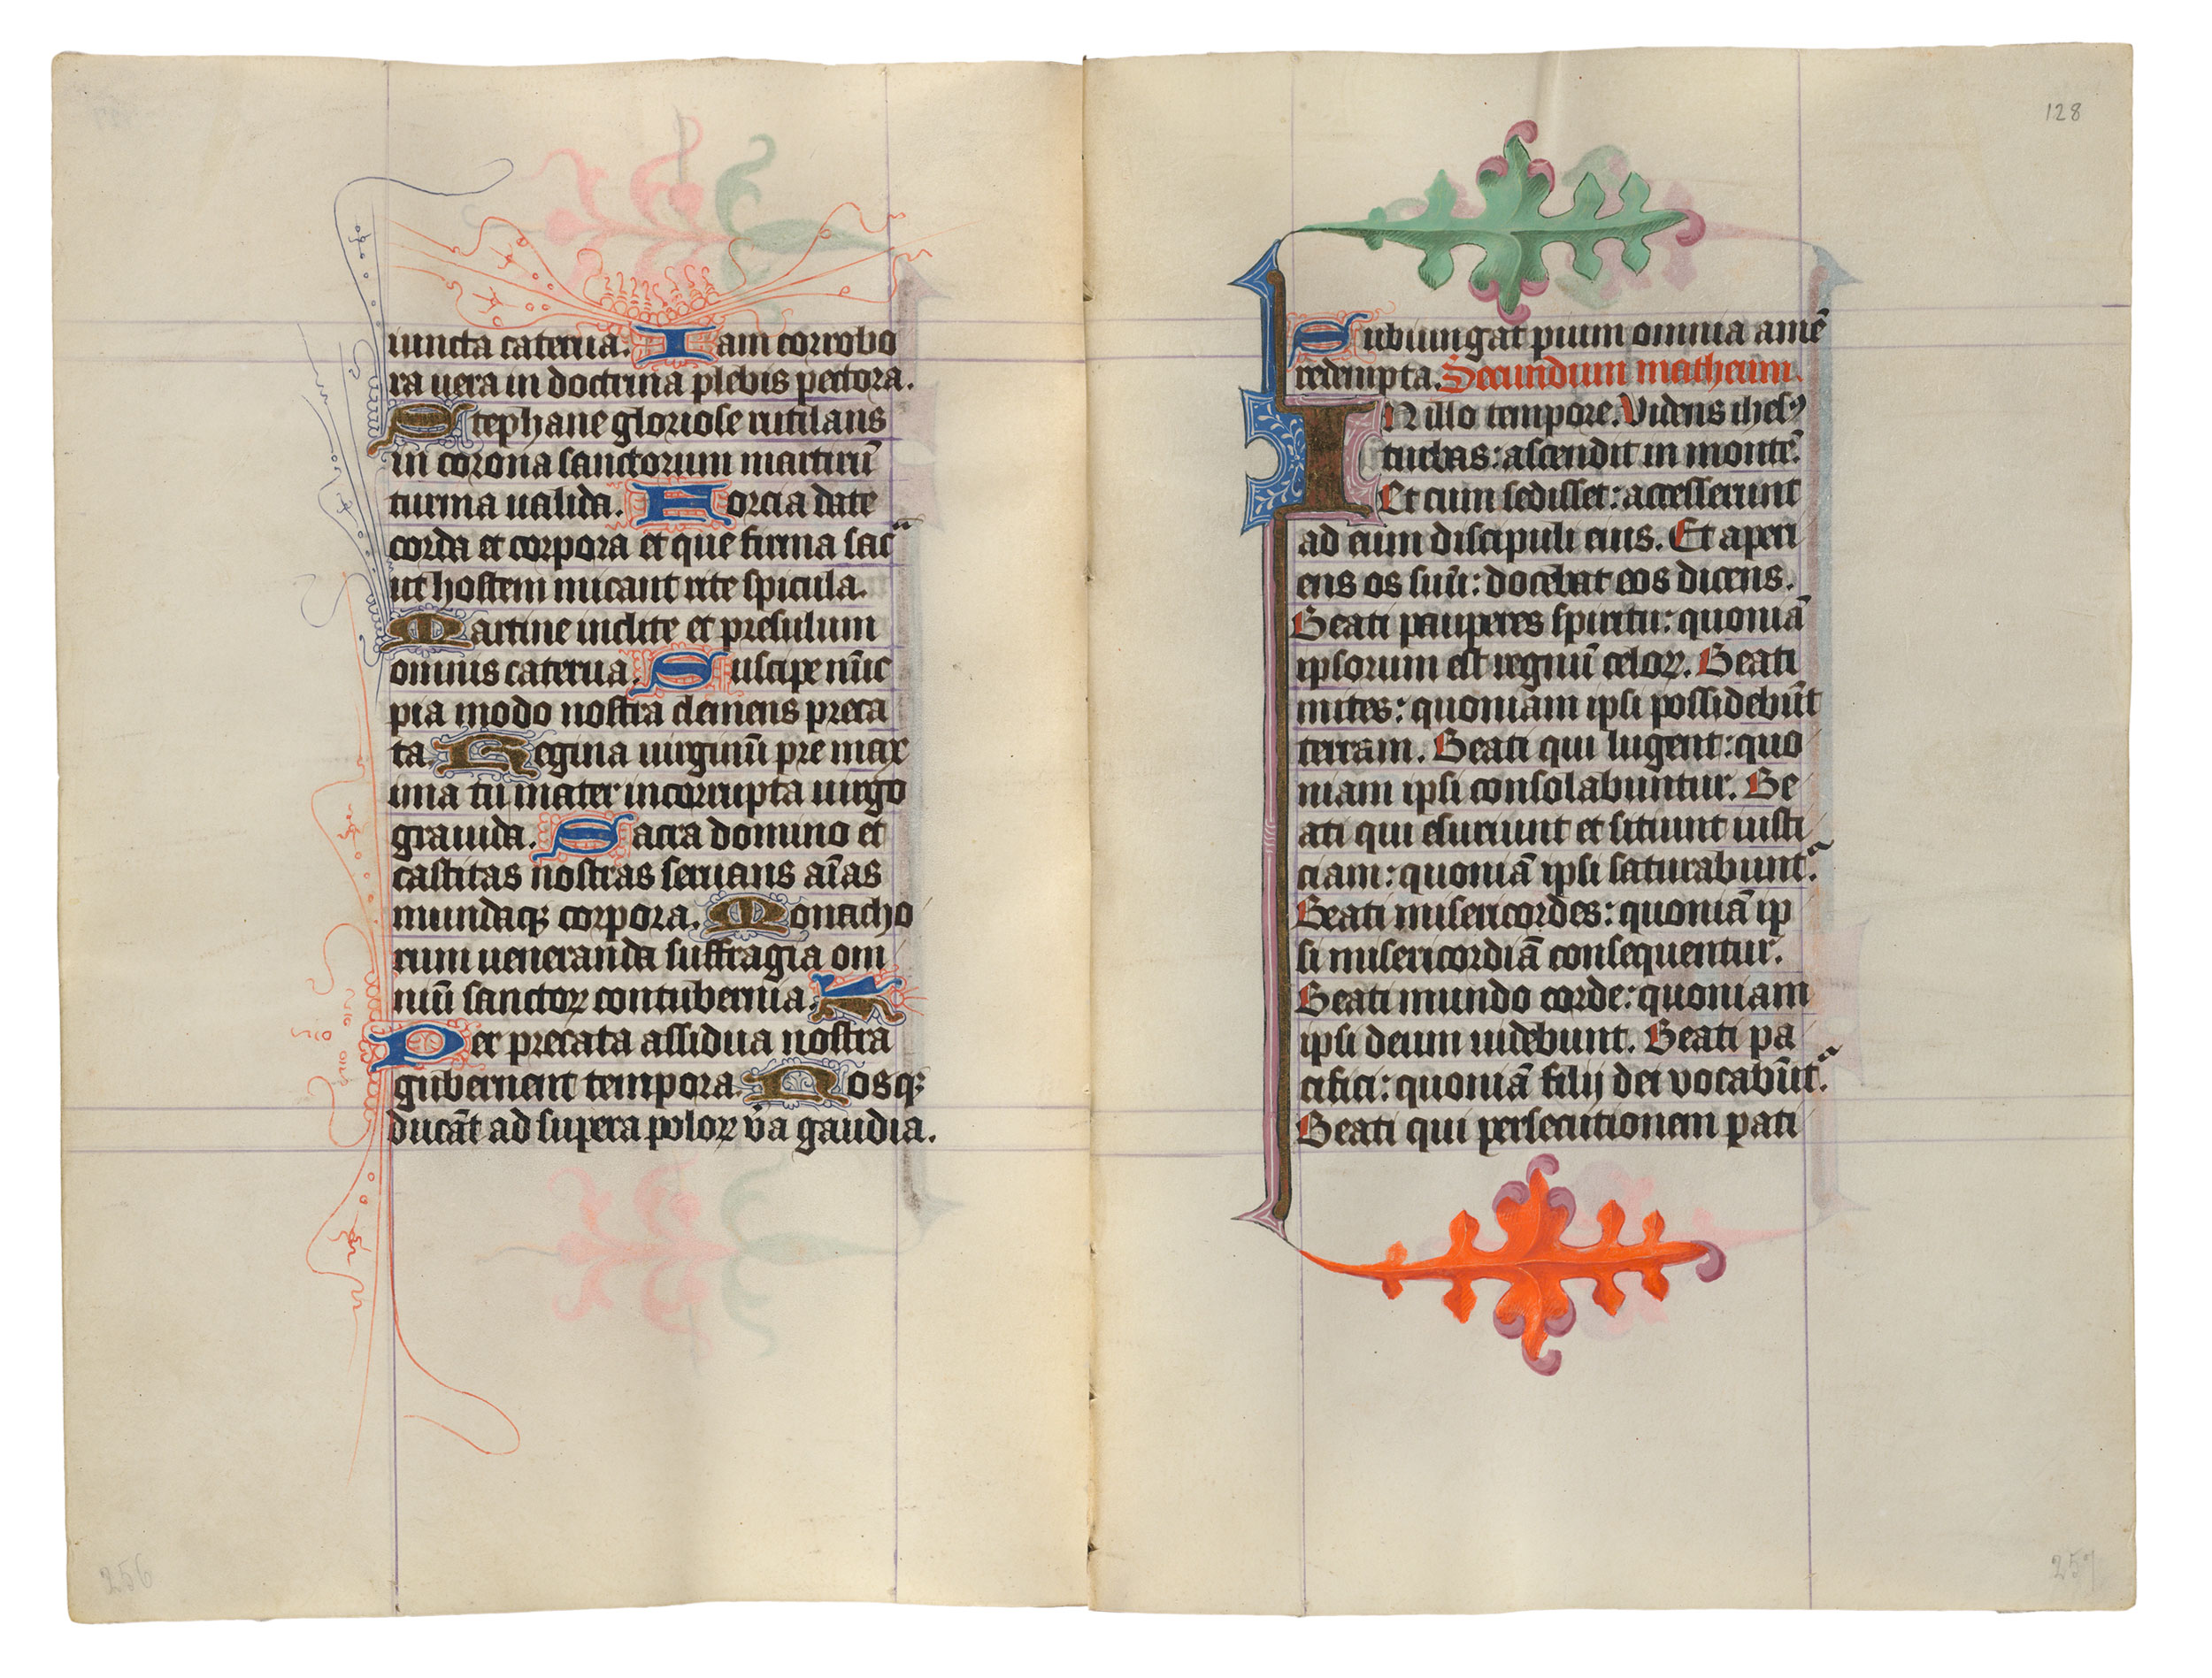 iuncta caterua. Iam corrobo
ra uera in doctrina plebis pectora.
Stephane gloriose rutilans
in corona sanctorum martirū
turma ualida. Forcia date
corda et corpora et que firma sacᵃ
ut hostem uincant rite spicula.
Martine inclite et presulum
omnis caterua. Suscipe nūc
pia modo nostra clemens preca
ta. Regina uirginū pre max
ima tu mater incorrupta uirgo
grauida. Sacra domino et
castitas nostras seruans aīas
mundaqꝫ corpora. Monacho
rum ueneranda suffragia om
niū sanctoꝝ contubernia. A
Per precata assidua nostra
gubernent tempora. Nosqꝫ
ducāt ad supera poloꝝ v̄a gaudia.
256
128
Subiungat pium omnia amē
redempta. Secundum matheum.
IN illo tempore. Videns ihesꝰ
turbas: ascendit in montē.
Et cum sedisset: accesserunt
ad eum discipuli eius. Et aperi
ens os suū: docebat eos dicens.
Beati pauperes spiritu: quoniā
ipsorum est regnū celoꝝ. Beati
mites: quoniam ipsi possidebūt
terram. Beati qui lugent: quo
niam ipsi consolabuntur. Be
ati qui esuriunt et sitiunt iusti
ciam: quoniā ipsi saturabuntᷣ.
Beati misericordes: quoniā ip
si misericordiā consequentur.
Beati mundo corde: quoniam
ipsi deum uidebunt. Beati pa
cifici: quoniā filij dei vocabūtᷣ.
Beati qui persecutionem pati
257